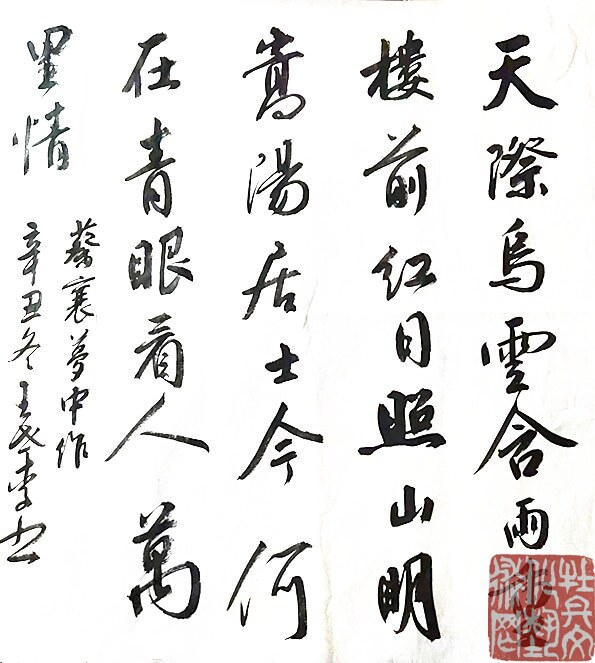 天際烏雲含雨重
樓前紅日照山明
嵩陽居士今何
在青眼看人萬
里情
蔡襄夢中作
辛丑冬王